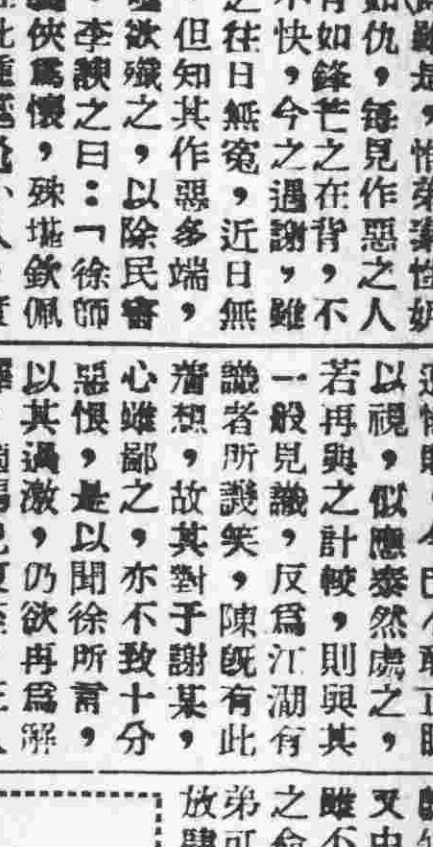 如仇，每見作惡之人
有如鋒芒之在背，不
快，今之遇謝，雖
之往日無寃，近日無
但知其作惡多端，
欲殲之，以除民害
李諛之曰：「徐師
俠爲懷，殊堪欽佩
以視，似應泰然處之，
若再與之計較，則與其
一般見識，反爲江湖有
識者所譏笑，陳旣有此
着想，故其對于謝某，
心雖鄙之，亦不致十分
惡恨，是以聞徐所言，
以其過激，仍欲再爲解
又中
雖不
之命
弟可
放肆